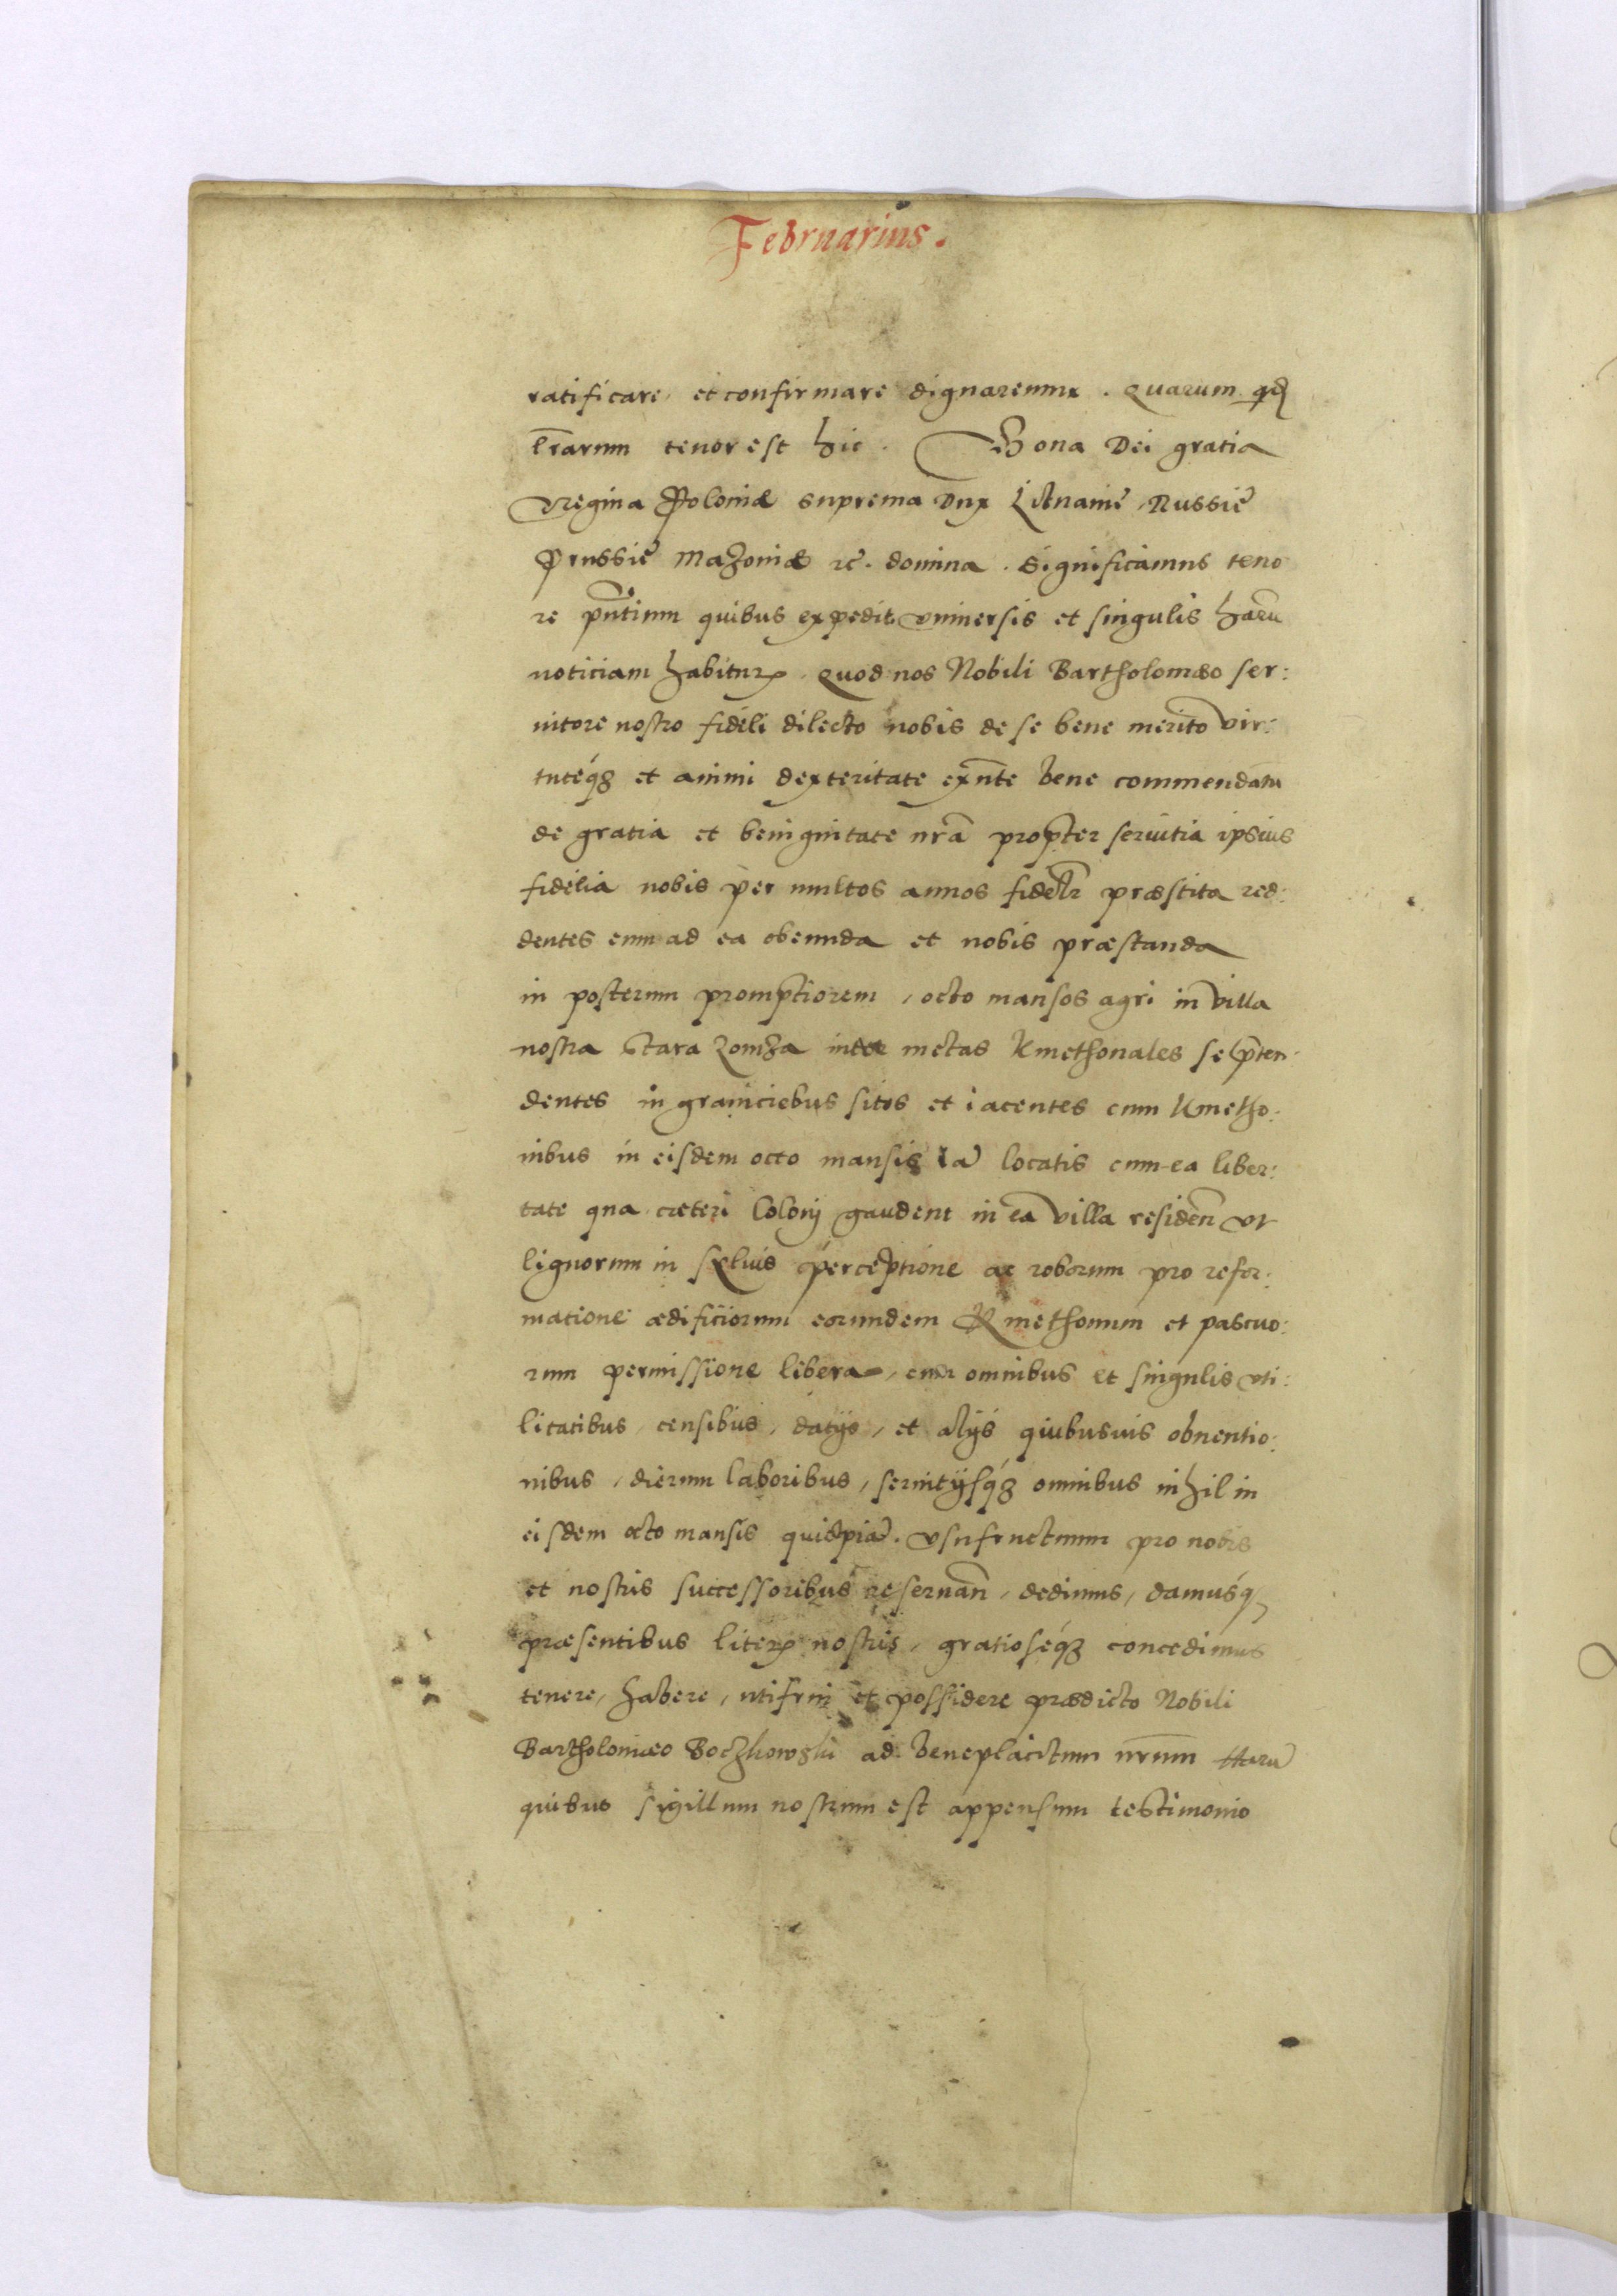 Februarius.
ratificare, et confirmare dignaremur. Quarum qd
lrarum tenor est hic. Bona Dei gratia
Regina Poloniæ suprema Dux Lithuanie, Russie
Prussie Mazoniæ rc. domina. Significamus teno
re pntium quibus expedit vniuersis et singulis haru
noticiam habitur, quod nos Nobili Bartholomæo ser:
uitore nostro fideli dilecto nobis de se bene merito vir:
tuteq3 et animi dexteritate exnte bene commendatu
de gratia et benignitate nra propter seruitia ipsius
fidelia nobis per multos annos fidelr præstita red:
dentes eum ad ea obeunda et nobis præstanda
in posterum promptiorem, octo mansos agri in villa
nostra Stara Lomza metas Kmethonales se pten:
dentes in graniciebus sitos et iacentes cum Kmetho:
nibus in eisdem octo mansis ia locatis cum ea liber:
tate qua cæteri Colonj gaudent in ea villa residen vt
lignorum in syluis perceptione ac roborum pro refor:
matione ædificiorum eorundem Kmethonum et pascuo:
rum permissione libera, cum omnibus et singulis vti:
litatibus, censibus, datijs, et alijs quibusuis obuentio:
nibus, dierum laboribus, seruitijsq3 omnibus nihil in
eisdem octo mansis quicpia. vsufructuum pro nobis
et nostris successoribus reseruan, dedimus, damusq3
præsentibus liter nostris, gratioseq3 concedimus
tenere, habere, utifrui et possidere prædicto Nobili
Bartholomæo Boczkowski ad beneplacitum nrum Haru
quibus sigillum nostrum est appensum testimonio